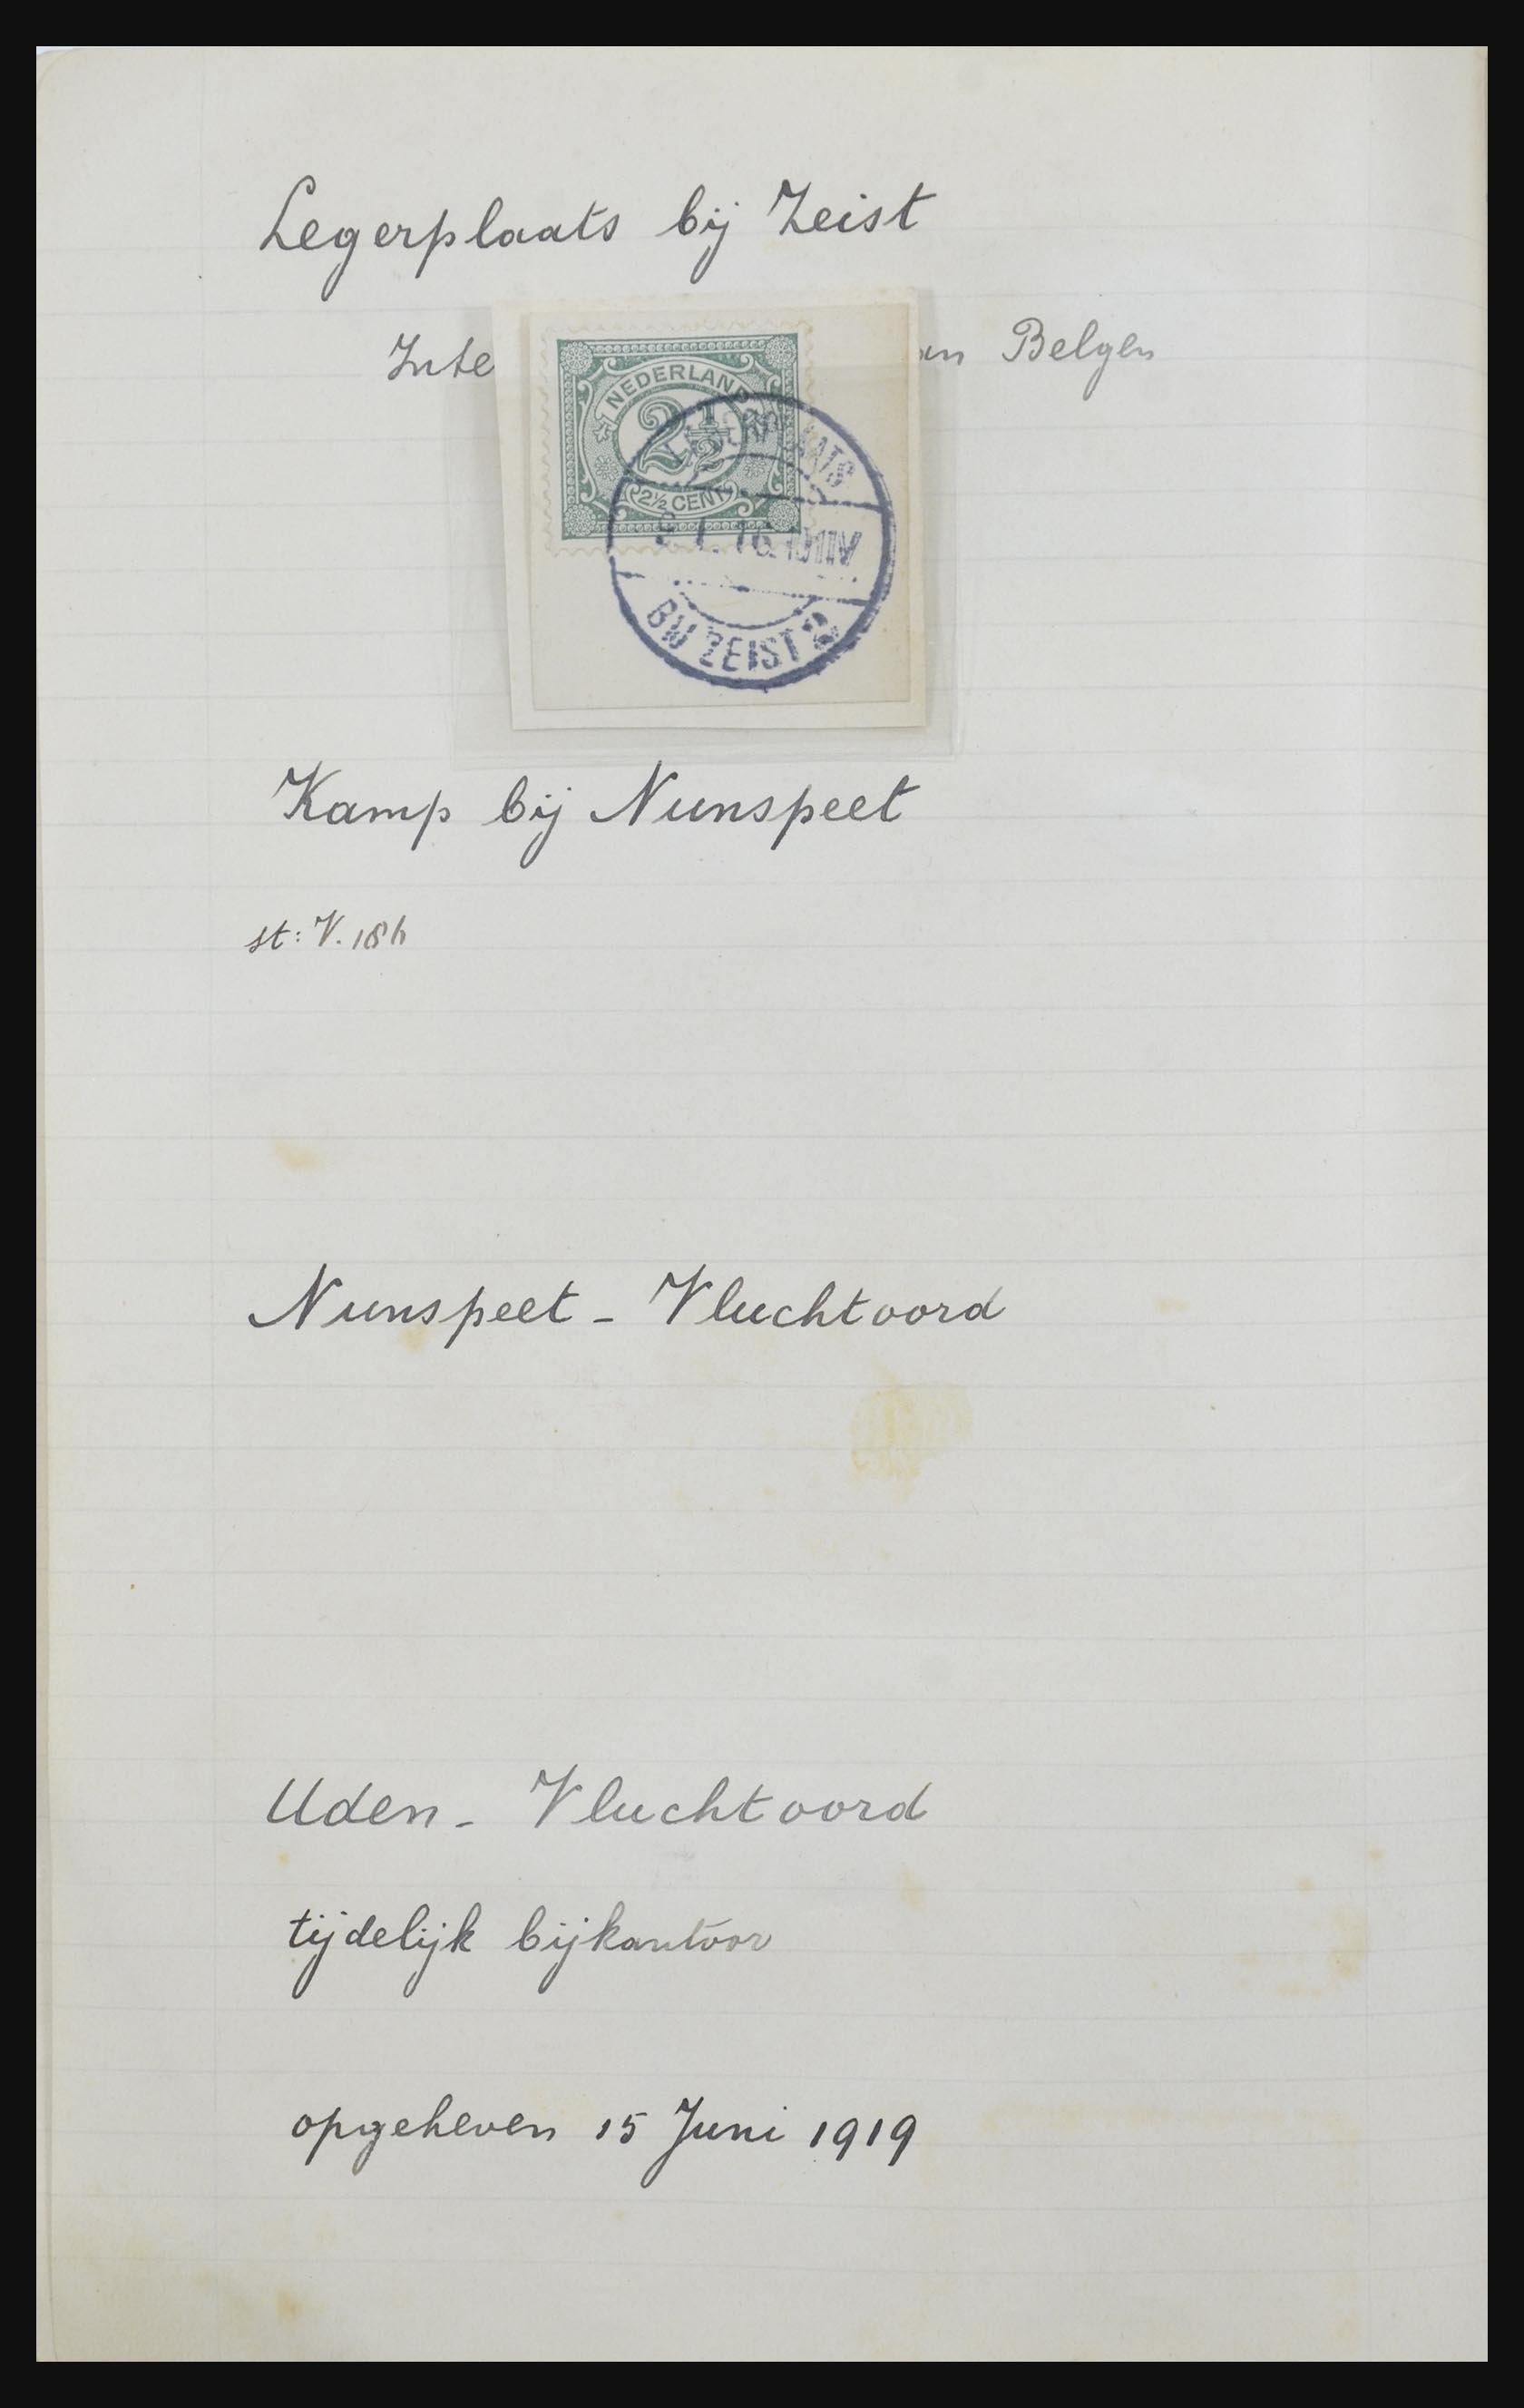 Legerplaats bij Zeist
Inte an Belgen
NEDERLAND
2½
2½ CENT
LEGERPLAATS
1.16
BIJ ZEIST 2
Kamp bij Nunspeet
st: V.
Nunspeet - Vluchtoord
Uden - Vluchtoord
tijdelijk bijkantoor
opgeheven 15 Juni 1919